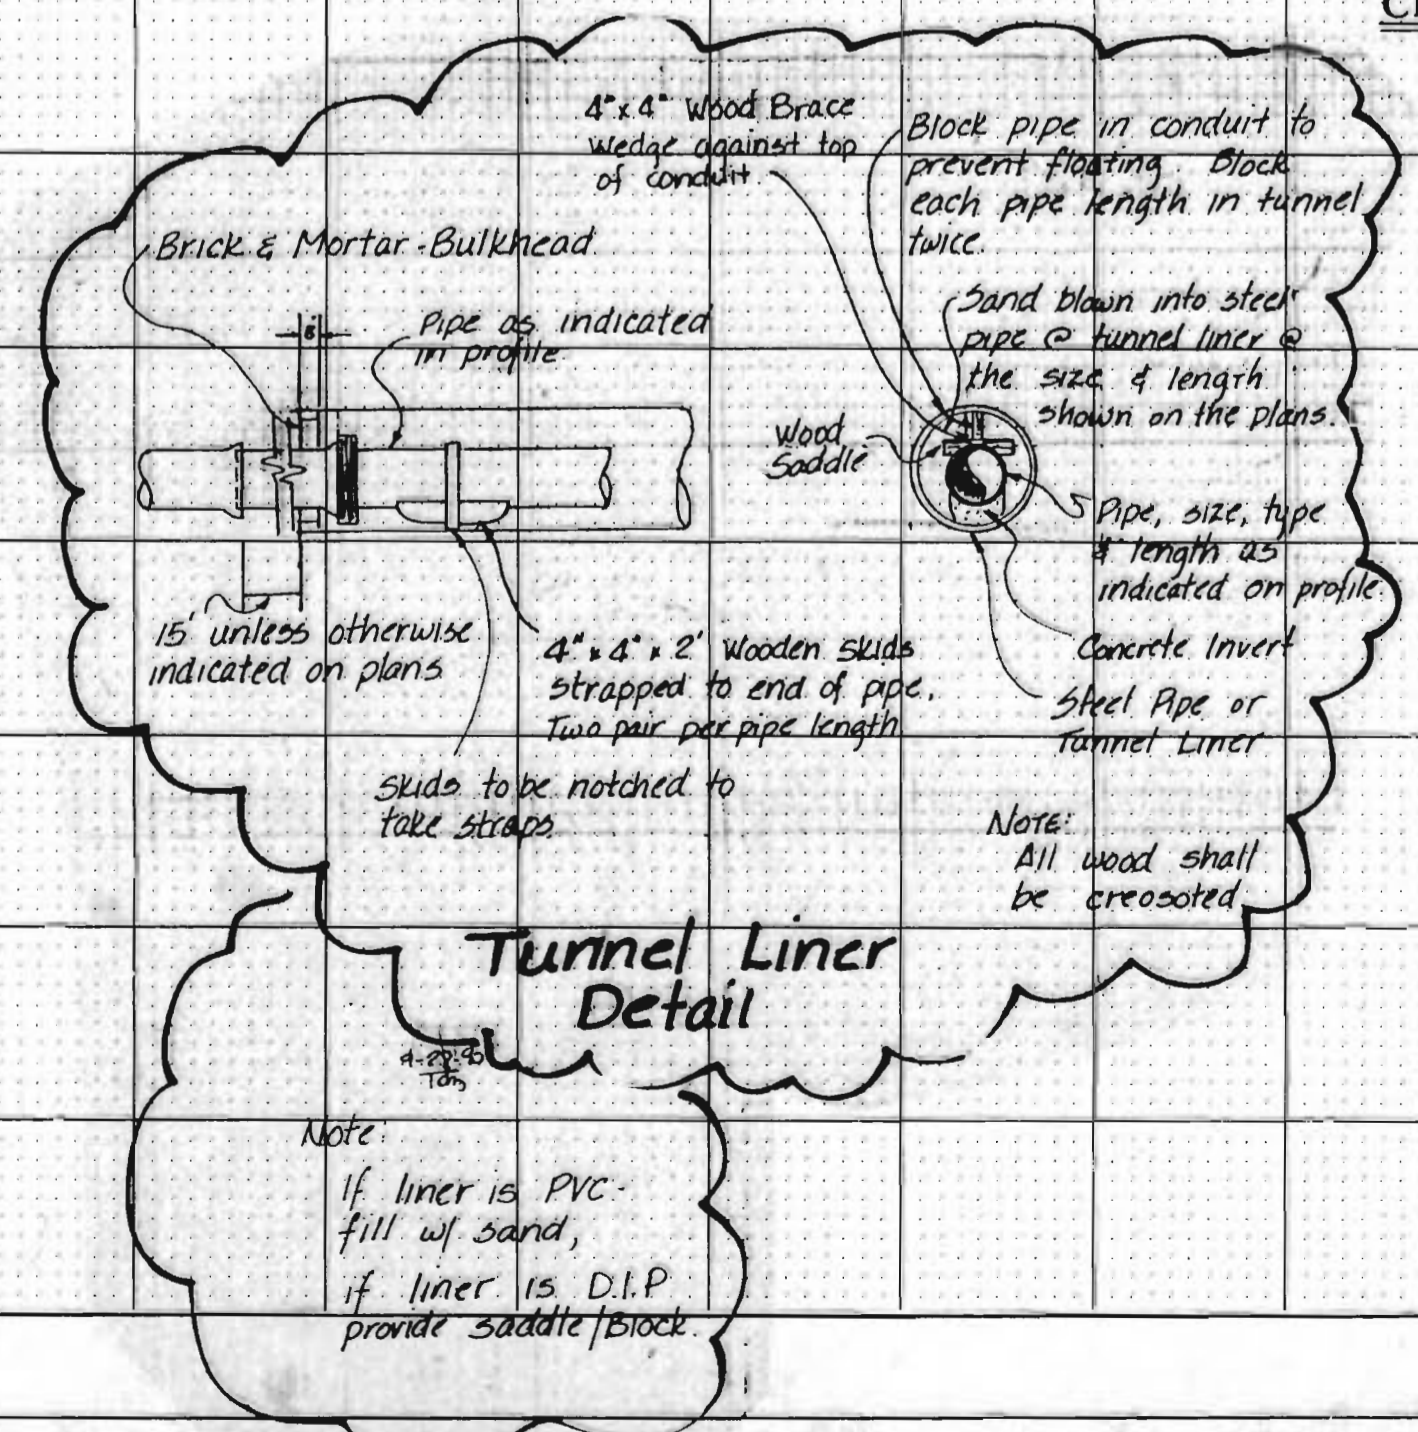 4" x 4" Wood Brace
wedge against top
of conduit.
Block pipe in conduit to
prevent floating. Block
each pipe length in tunnel
twice.
Brick & Mortar-Bulkhead.
8"
Pipe as indicated
in profile.
Sand blown into steel
pipe @ tunnel liner @
the size & length
shown on the plans.
Wood
Saddle
Pipe, size, type
& length as
indicated on profile.
15' unless otherwise
indicated on plans
4" x 4" x 2' Wooden Skids
strapped to end of pipe.
Two pair per pipe length
Concrete Invert
Steel Pipe or
Tunnel Liner
Skids to be notched to
take straps.
NOTE:
All wood shall
be creosoted
Tunnel Liner
Detail
Note:
If liner is PVC-
fill w/ sand,
if liner is D.I.P
provide saddle/Block.